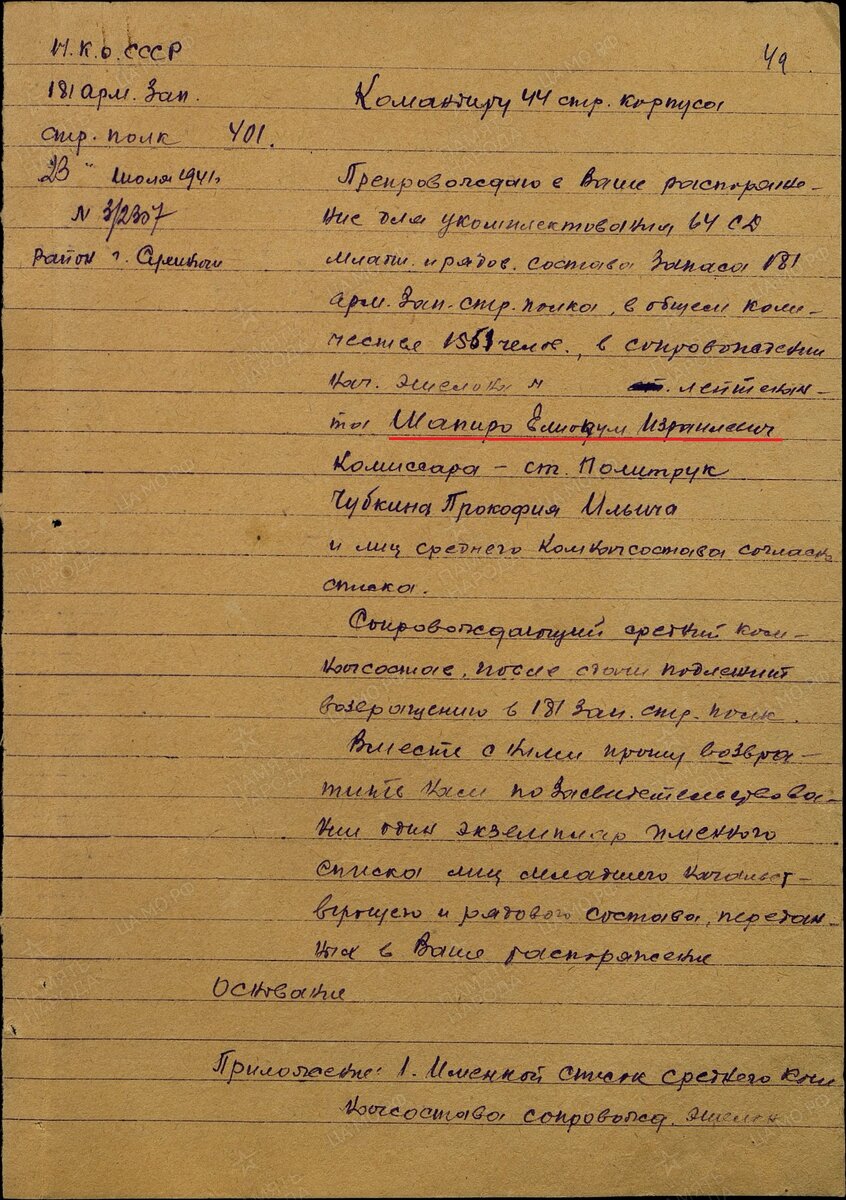 Н.К.О. СССР
181 арм. Зап.
стр. полк 401.
23 " июля 1941г.
N 3/2307
район г.
49
Командиру 44 стр. корпуса
Препровождаю в Ваше распоряже-
ние для укомплектования 64 СД
младш. и рядов. состава Запаса 181
арм. Зап. стр. полка, в общем коли-
честве 1551 челов., в сопровождении
нач. эшелона N лейтенан-
та Шапиро Елиокум Израилевич
Комиссара – ст. Политрук
Чубкина Прокофия Ильича
и лиц среднего Комначсостава согласно
списка.
Сопровождающий средний ком-
начсостав, после сдачи подлежит
возвращению в 181 Зап. стр. полк.
Вместе с ними прошу возвра-
тить нам по Засвидетельствова-
нии один экземпляр именного
списка лиц младшего начальст-
вующего и рядового состава, передан-
ных в Ваше распоряжение
Основание
Приложение: 1. Именной список среднего ком
начсостава сопровожд. эшелон